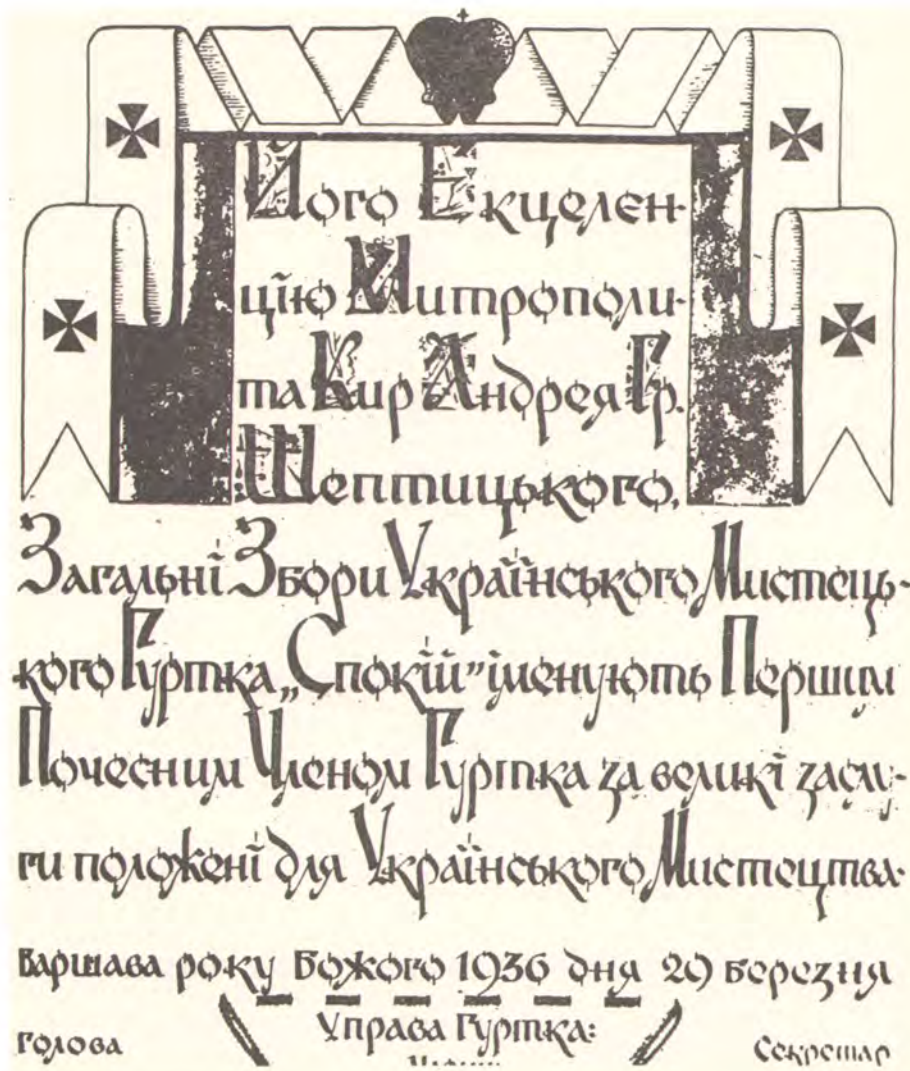 Його Екцелен-
цію Митрополи-
та Кир Андрея Гр.
Шептицького.
Загальні Збори Українського Мистець-
кого Гуртка „Спокій” іменують Першим
Почесним Членом Гуртка за великі заслу-
ги положені для Українського Мистецтва.
Варшава року Божого 1936 дня 29 березня
Управа Гуртка:
Голова Секретар